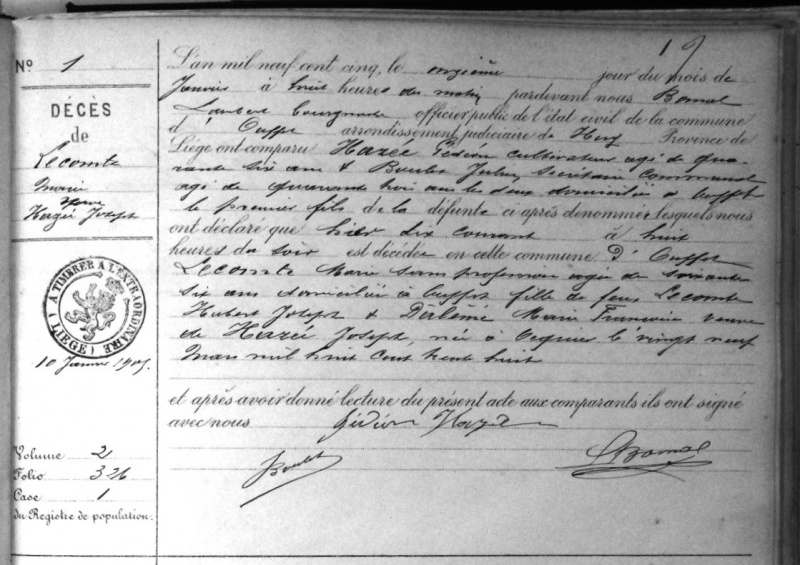 19
N° 1
DÉCÈS
de
Lecomte
Marie
veuve
Hazée Joseph
A TIMBRER A L'EXTRAORDINAIRE
(LIÉGE)
10 Janvier 1905.
Volume 2
Folio 326
Case 1
du Registre de population.
L'an mil neuf cent cinq, le onzième jour du mois de
Janvier à huit heures du matin pardevant nous Bomal
Lambert bourgmestre officier public de l'état civil de la commune
d' Ouffet arrondissement judiciaire de Huy Province de
Liége ont comparu Hazée cultivateur agé de qua-
rante six ans & Boulet Jules, Secrétaire Communal
agé de quarante trois ans les deux domiciliés à Ouffet
le premier fils de la défunte ci après dénommée, lesquels nous
ont déclaré que hier dix courant à huit
heures du soir est décédée en cette commune D' Ouffet
Lecomte Marie sans profession agée de soixante
six ans domiciliée à Ouffet fille de feus Lecomte
Hubert Joseph & Marie Françoise veuve
de Hazée Joseph, née à le vingt neuf
Mars mil huit cent trente huit
et après avoir donné lecture du présent acte aux comparants ils ont signé
avec nous
Boulet
Bomal